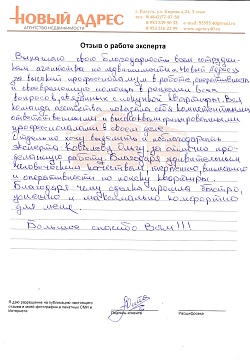 НОВЫЙ АДРЕС
АГЕНТСТВО НЕДВИЖИМОСТИ
Отзыв о работе эксперта
Выражаю свою благодарность всем сотрудникам
агентства по недвижимости «Новый Адрес»
за высокий профессионализм в работе, оперативность
и своевременную помощь в решении всех
вопросов, связанных с покупкой квартиры. Вся
команда агентства показала себя компетентными,
ответственными и высококвалифицированными
профессионалами в своем деле.
Отдельно хочу выделить и поблагодарить
эксперта Ковалеву Ольгу за отлично про-
деланную работу. Благодаря удивительным
человеческим качествам, терпению, вниманию
и оперативности по поиску квартиры.
Благодаря чему сделка прошла быстро,
успешно и максимально комфортно
для меня.
Большое спасибо Вам!!!
Я даю разрешение на публикацию настоящего
отзыва и моей фотографии в печатных СМИ и
Интернете
Подпись клиента
Расшифровка